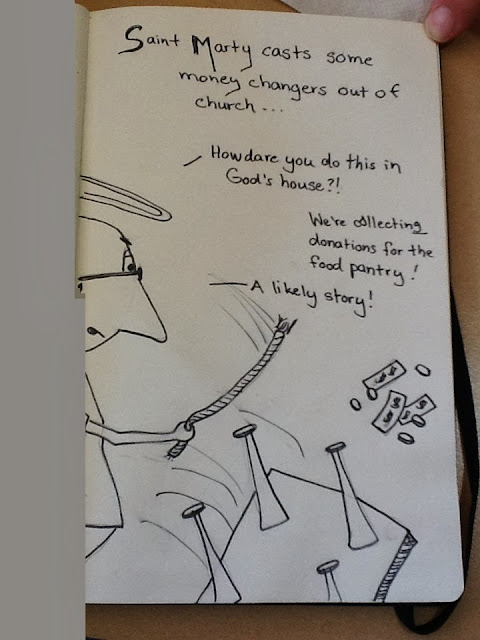 Saint Marty casts some
money changers out of
church...
How dare you do this in
God's house?!
We're collecting
donations for the
food pantry!
A likely story!
$ $
$ $
$ $